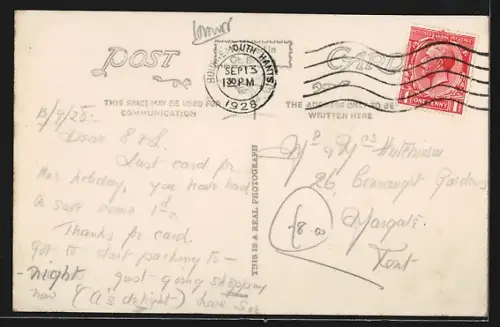 POST
CARD
BOURNEMOUTH HANTS
SEPT 13
30 PM
1928
ONE PENNY
THIS SPACE MAY BE USED FOR
COMMUNICATION
THE ADDRESS ONLY TO BE
WRITTEN HERE
THIS IS A REAL PHOTOGRAPH
Dear
Last card for
this holiday, you have had
a save some
Thanks for card.
got to start packing to-
night just going shopping
now (A's delight) have
Mr & Mrs Hutchinson
26, Connaught Gardens
Margate.
Kent